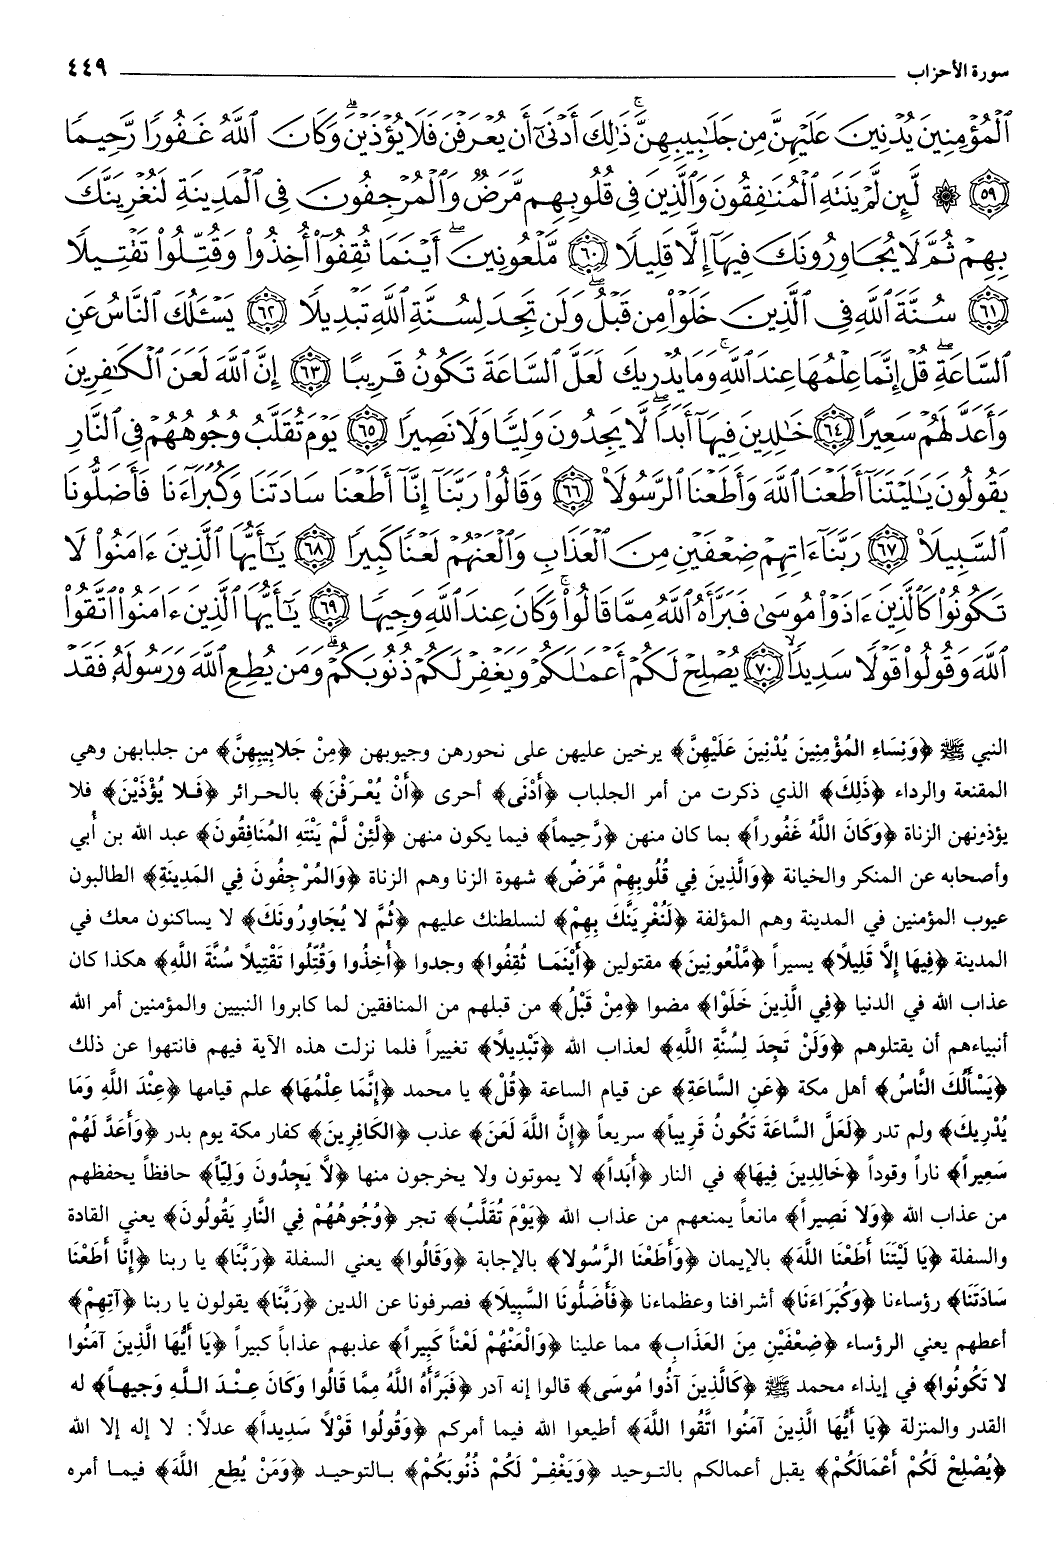 سورة الأحزاب ٤٤٩
ٱلْمُؤْمِنِينَ يُدْنِينَ عَلَيْهِنَّ مِن جَلَٰبِيبِهِنَّ ۚ ذَٰلِكَ أَدْنَىٰٓ أَن يُعْرَفْنَ فَلَا يُؤْذَيْنَ ۗ وَكَانَ ٱللَّهُ غَفُورًا رَّحِيمًا
﴿٥٩﴾ ۞ لَّئِن لَّمْ يَنتَهِ ٱلْمُنَٰفِقُونَ وَٱلَّذِينَ فِى قُلُوبِهِم مَّرَضٌ وَٱلْمُرْجِفُونَ فِى ٱلْمَدِينَةِ لَنُغْرِيَنَّكَ
بِهِمْ ثُمَّ لَا يُجَاوِرُونَكَ فِيهَآ إِلَّا قَلِيلًا ﴿٦٠﴾ مَّلْعُونِينَ ۖ أَيْنَمَا ثُقِفُوٓا۟ أُخِذُوا۟ وَقُتِّلُوا۟ تَقْتِيلًا
﴿٦١﴾ سُنَّةَ ٱللَّهِ فِى ٱلَّذِينَ خَلَوْا۟ مِن قَبْلُ ۖ وَلَن تَجِدَ لِسُنَّةِ ٱللَّهِ تَبْدِيلًا ﴿٦٢﴾ يَسْـَٔلُكَ ٱلنَّاسُ عَنِ
ٱلسَّاعَةِ ۖ قُلْ إِنَّمَا عِلْمُهَا عِندَ ٱللَّهِ ۚ وَمَا يُدْرِيكَ لَعَلَّ ٱلسَّاعَةَ تَكُونُ قَرِيبًا ﴿٦٣﴾ إِنَّ ٱللَّهَ لَعَنَ ٱلْكَٰفِرِينَ
وَأَعَدَّ لَهُمْ سَعِيرًا ﴿٦٤﴾ خَٰلِدِينَ فِيهَآ أَبَدًا ۖ لَّا يَجِدُونَ وَلِيًّا وَلَا نَصِيرًا ﴿٦٥﴾ يَوْمَ تُقَلَّبُ وُجُوهُهُمْ فِى ٱلنَّارِ
يَقُولُونَ يَٰلَيْتَنَآ أَطَعْنَا ٱللَّهَ وَأَطَعْنَا ٱلرَّسُولَا۠ ﴿٦٦﴾ وَقَالُوا۟ رَبَّنَآ إِنَّآ أَطَعْنَا سَادَتَنَا وَكُبَرَآءَنَا فَأَضَلُّونَا
ٱلسَّبِيلَا۠ ﴿٦٧﴾ رَبَّنَآ ءَاتِهِمْ ضِعْفَيْنِ مِنَ ٱلْعَذَابِ وَٱلْعَنْهُمْ لَعْنًا كَبِيرًا ﴿٦٨﴾ يَٰٓأَيُّهَا ٱلَّذِينَ ءَامَنُوا۟ لَا
تَكُونُوا۟ كَٱلَّذِينَ ءَاذَوْا۟ مُوسَىٰ فَبَرَّأَهُ ٱللَّهُ مِمَّا قَالُوا۟ ۚ وَكَانَ عِندَ ٱللَّهِ وَجِيهًا ﴿٦٩﴾ يَٰٓأَيُّهَا ٱلَّذِينَ ءَامَنُوا۟ ٱتَّقُوا۟
ٱللَّهَ وَقُولُوا۟ قَوْلًا سَدِيدًا ﴿٧٠﴾ يُصْلِحْ لَكُمْ أَعْمَٰلَكُمْ وَيَغْفِرْ لَكُمْ ذُنُوبَكُمْ ۗ وَمَن يُطِعِ ٱللَّهَ وَرَسُولَهُۥ فَقَدْ
النبي ﷺ ﴿وَنِسَاءِ المُؤْمِنِينَ يُدْنِينَ عَلَيْهِنَّ﴾ يرخين عليهن على نحورهن وجيوبهن ﴿مِنْ جَلابِيبِهِنَّ﴾ من جلبابهن وهي
المقنعة والرداء ﴿ذَلِكَ﴾ الذي ذكرت من أمر الجلباب ﴿أَدْنَى﴾ أحرى ﴿أَنْ يُعْرَفْنَ﴾ بالحرائر ﴿فَلا يُؤْذَيْنَ﴾ فلا
يؤذونهن الزناة ﴿وَكَانَ اللَّهُ غَفُوراً﴾ بما كان منهن ﴿رَّحِيماً﴾ فيما يكون منهن ﴿لَّئِنْ لَّمْ يَنْتَهِ المُنَافِقُونَ﴾ عبد الله بن أُبي
وأصحابه عن المنكر والخيانة ﴿وَالَّذِينَ فِي قُلُوبِهِمْ مَّرَضٌ﴾ شهوة الزنا وهم الزناة ﴿وَالمُرْجِفُونَ فِي المَدِينَةِ﴾ الطالبون
عيوب المؤمنين في المدينة وهم المؤلفة ﴿لَنُغْرِيَنَّكَ بِهِمْ﴾ لنسلطنك عليهم ﴿ثُمَّ لا يُجَاوِرُونَكَ﴾ لا يساكنون معك في
المدينة ﴿فِيهَا إِلَّا قَلِيلاً﴾ يسيراً ﴿مَّلْعُونِينَ﴾ مقتولين ﴿أَيْنَمَا ثُقِفُوا﴾ وجدوا ﴿أُخِذُوا وَقُتِّلُوا تَقْتِيلاً سُنَّةَ اللَّهِ﴾ هكذا كان
عذاب الله في الدنيا ﴿فِي الَّذِينَ خَلَوْا﴾ مضوا ﴿مِنْ قَبْلُ﴾ من قبلهم من المنافقين لما كابروا النبيين والمؤمنين أمر الله
أنبياءهم أن يقتلوهم ﴿وَلَنْ تَجِدَ لِسُنَّةِ اللَّهِ﴾ لعذاب الله ﴿تَبْدِيلاً﴾ تغييراً فلما نزلت هذه الآية فيهم فانتهوا عن ذلك
﴿يَسْأَلُكَ النَّاسُ﴾ أهل مكة ﴿عَنِ السَّاعَةِ﴾ عن قيام الساعة ﴿قُلْ﴾ يا محمد ﴿إِنَّمَا عِلْمُهَا﴾ علم قيامها ﴿عِنْدَ اللَّهِ وَمَا
يُدْرِيكَ﴾ ولم تدر ﴿لَعَلَّ السَّاعَةَ تَكُونُ قَرِيباً﴾ سريعاً ﴿إِنَّ اللَّهَ لَعَنَ﴾ عذب ﴿الكَافِرِينَ﴾ كفار مكة يوم بدر ﴿وَأَعَدَّ لَهُمْ
سَعِيراً﴾ ناراً وقوداً ﴿خَالِدِينَ فِيهَا﴾ في النار ﴿أَبَداً﴾ لا يموتون ولا يخرجون منها ﴿لاَّ يَجِدُونَ وَلِيّاً﴾ حافظاً يحفظهم
من عذاب الله ﴿وَلا نَصِيراً﴾ مانعاً يمنعهم من عذاب الله ﴿يَوْمَ تُقَلَّبُ﴾ تجر ﴿وُجُوهُهُمْ فِي النَّارِ يَقُولُونَ﴾ يعني القادة
والسفلة ﴿يَا لَيْتَنَا أَطَعْنَا اللَّهَ﴾ بالإيمان ﴿وَأَطَعْنَا الرَّسُولا﴾ بالإجابة ﴿وَقَالُوا﴾ يعني السفلة ﴿رَبَّنَا﴾ يا ربنا ﴿إِنَّا أَطَعْنَا
سَادَتَنَا﴾ رؤساءنا ﴿وَكُبَرَاءَنَا﴾ أشرافنا وعظماءنا ﴿فَأَضَلُّونَا السَّبِيلَا﴾ فصرفونا عن الدين ﴿رَبَّنَا﴾ يقولون يا ربنا ﴿آتِهِمْ﴾
أعطهم يعني الرؤساء ﴿ضِعْفَيْنِ مِنَ العَذَابِ﴾ مما علينا ﴿وَالْعَنْهُمْ لَعْناً كَبِيراً﴾ عذبهم عذاباً كبيراً ﴿يَا أَيُّهَا الَّذِينَ آمَنُوا
لا تَكُونُوا﴾ في إيذاء محمد ﷺ ﴿كَالَّذِينَ آذُوا مُوسَى﴾ قالوا إنه آدر ﴿فَبَرَّأَهُ اللَّهُ مِمَّا قَالُوا وَكَانَ عِنْدَ اللَّهِ وَجِيهاً﴾ له
القدر والمنزلة ﴿يَا أَيُّهَا الَّذِينَ آمَنُوا اتَّقُوا اللَّهَ﴾ أطيعوا الله فيما أمركم ﴿وَقُولُوا قَوْلاً سَدِيداً﴾ عدلاً: لا إله إلا الله
﴿يُصْلِحْ لَكُمْ أَعْمَالَكُمْ﴾ يقبل أعمالكم بالتوحيد ﴿وَيَغْفِرْ لَكُمْ ذُنُوبَكُمْ﴾ بالتوحيد ﴿وَمَنْ يُطِعِ اللَّهَ﴾ فيما أمره